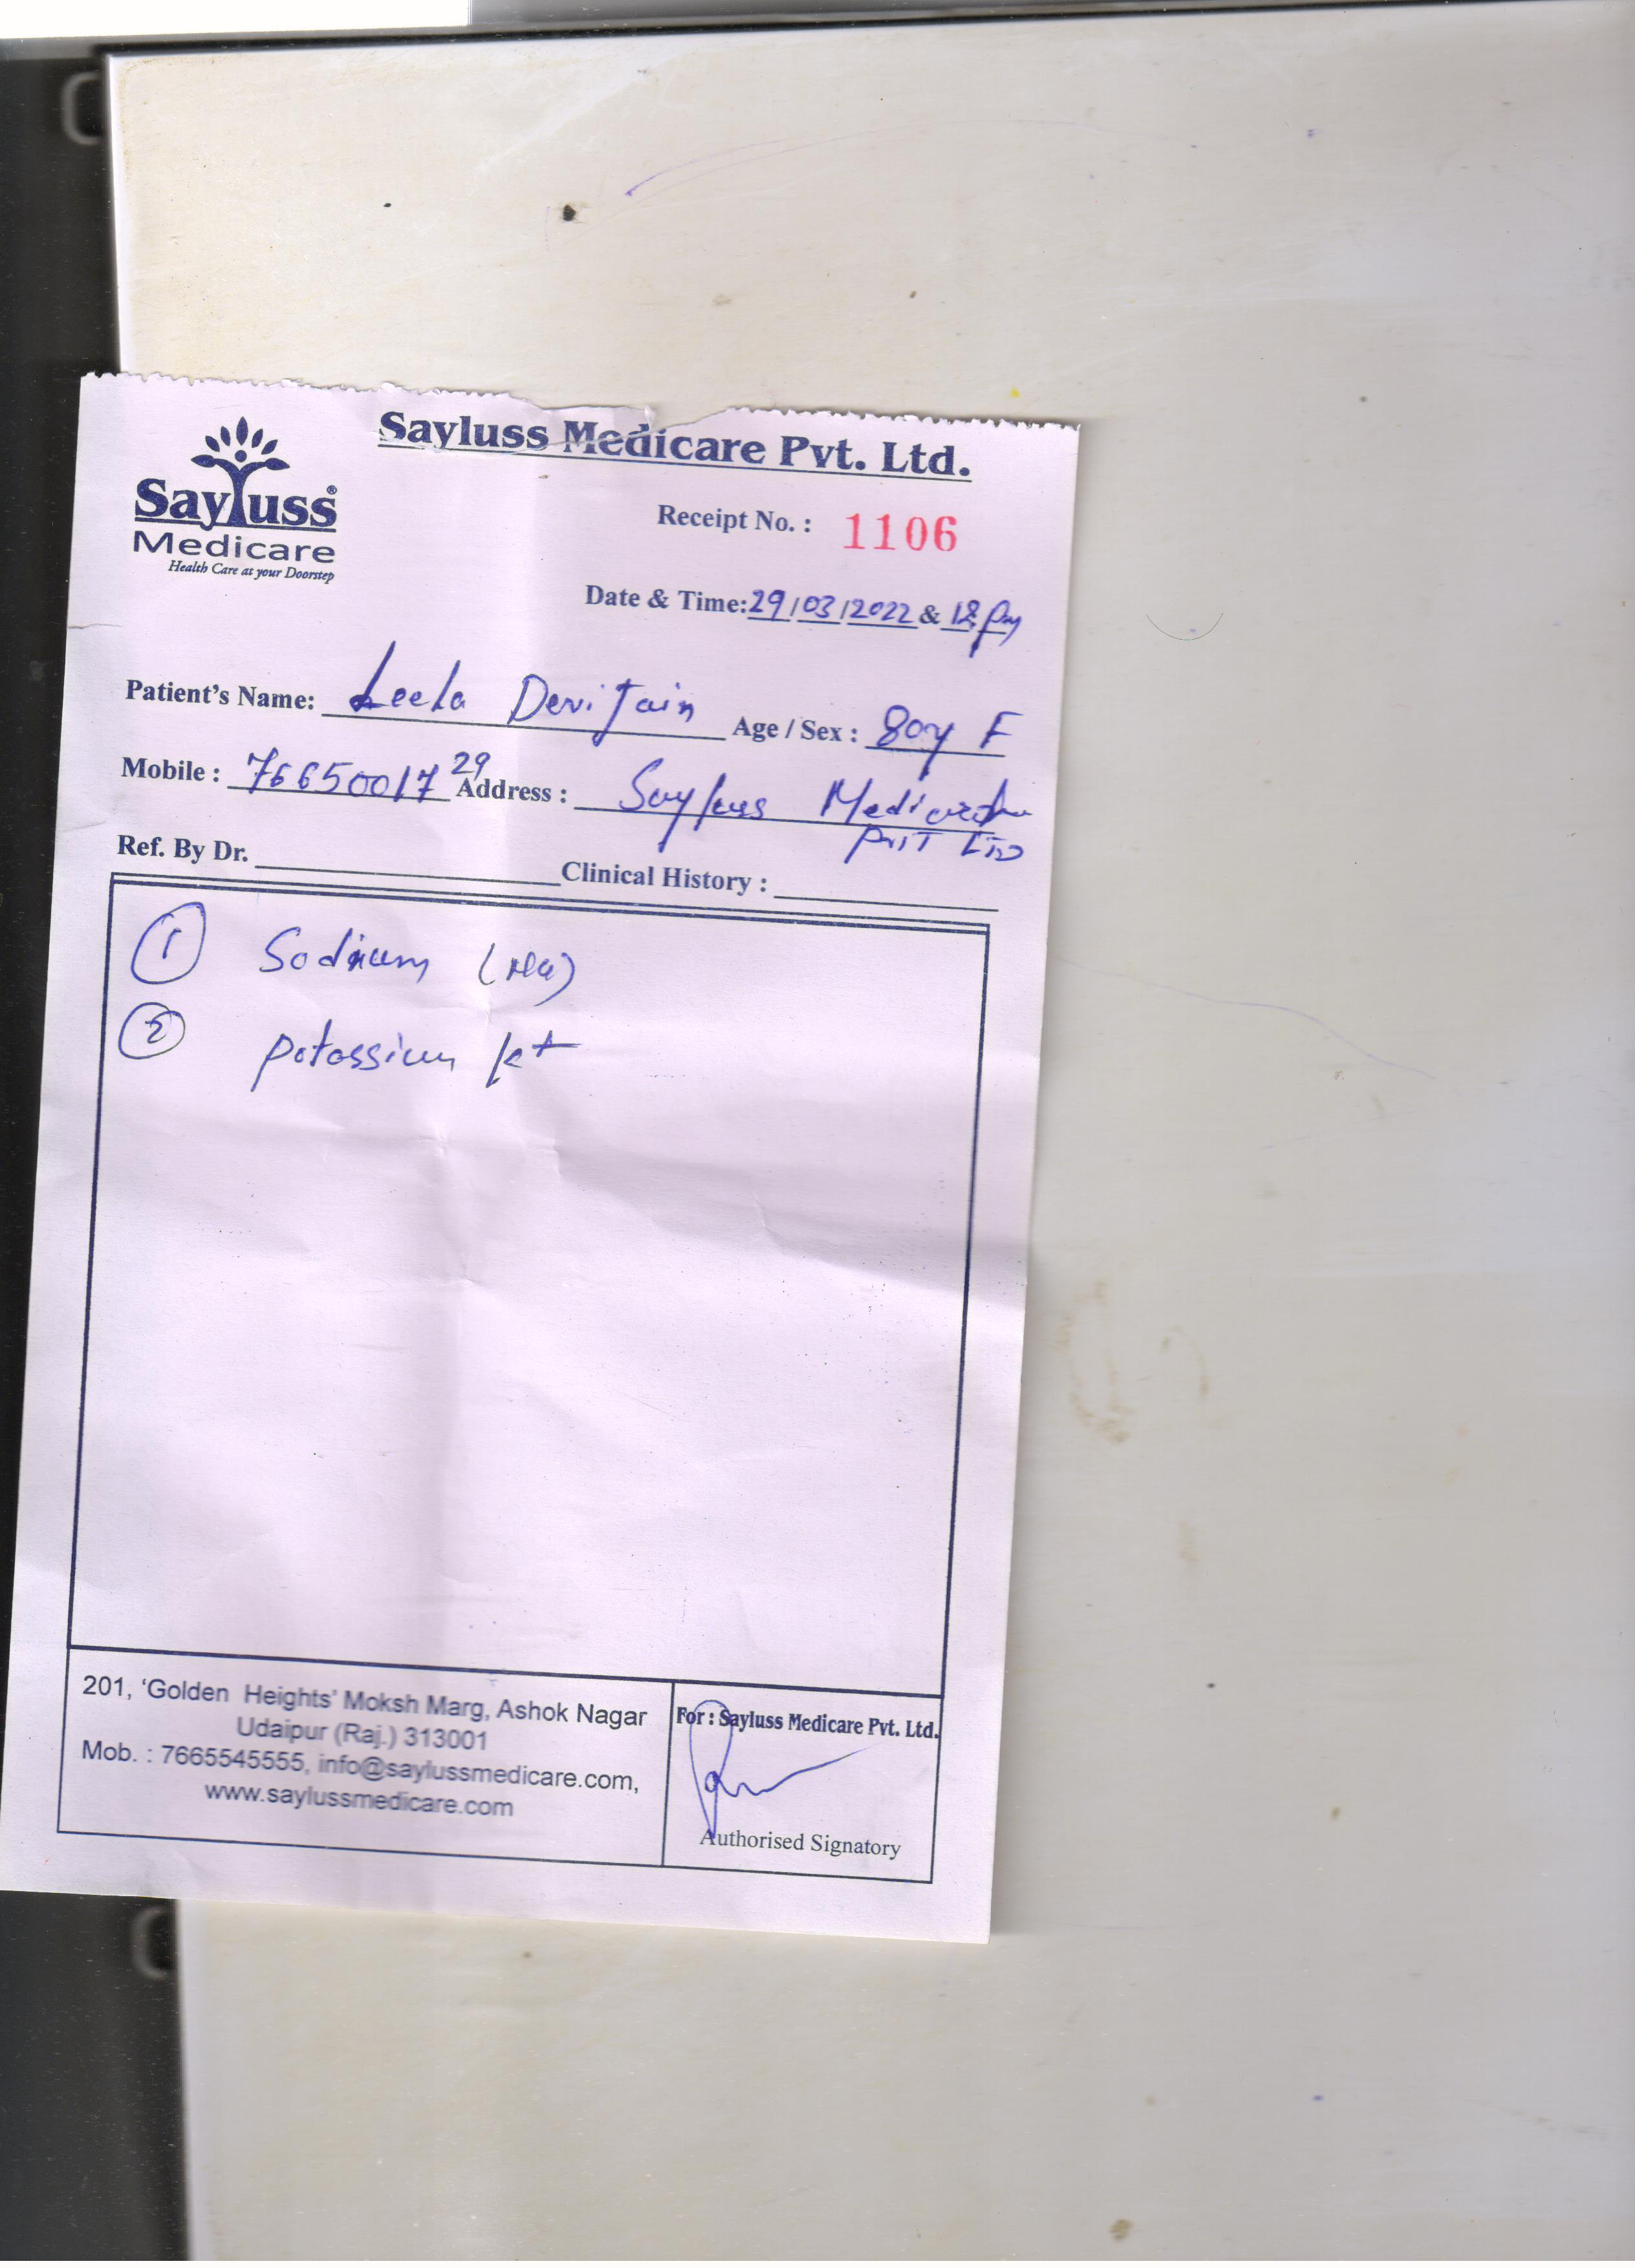 Sayluss Medicare Pvt. Ltd.
Sayluss®
Medicare
Health Care at your Doorstep
Receipt No. : 1106
Date & Time: 29/03/2022 & 12 pm
Patient's Name: Leela Devi Jain Age / Sex : 80y F
Mobile : 7665001729 Address : Sayluss Medicare
PVT LTD
Ref. By Dr. Clinical History :
1 Sodium (Na)
2 potassium k+
201, 'Golden Heights' Moksh Marg, Ashok Nagar
Udaipur (Raj.) 313001
Mob. : 7665545555, info@saylussmedicare.com,
www.saylussmedicare.com
For : Sayluss Medicare Pvt. Ltd.
Authorised Signatory